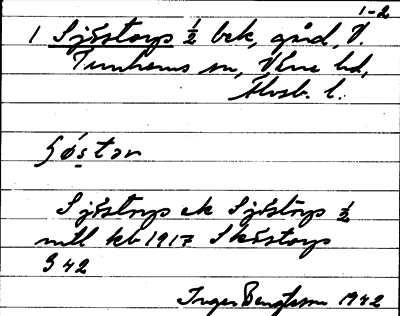 1-2
1 Sjöstorp ½ bek, gård, V.
Tunhems sn, Väne hd,
Älvsb. l.
Sjöstorp ek Sjöstorp ½
mtl kb 1917 Skåstorp
S 42
Inger Bengtsson 1942